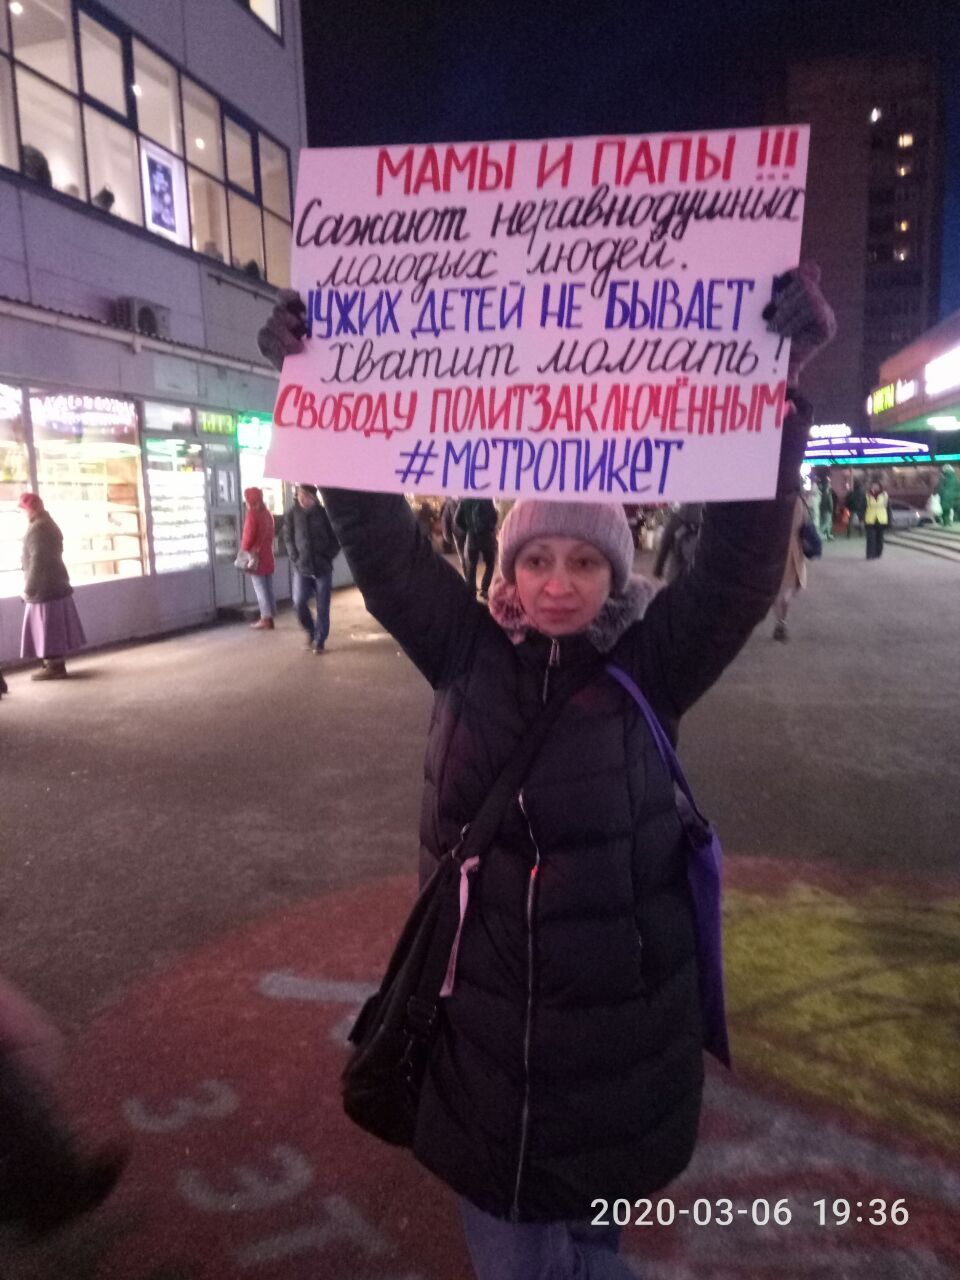 МАМЫ И ПАПЫ !!!
Сажают неравнодушных
молодых людей.
ЧУЖИХ ДЕТЕЙ НЕ БЫВАЕТ
Хватит молчать!
СВОБОДУ ПОЛИТЗАКЛЮЧЁННЫМ
#МЕТРОПИКЕТ
2020-03-06 19:36